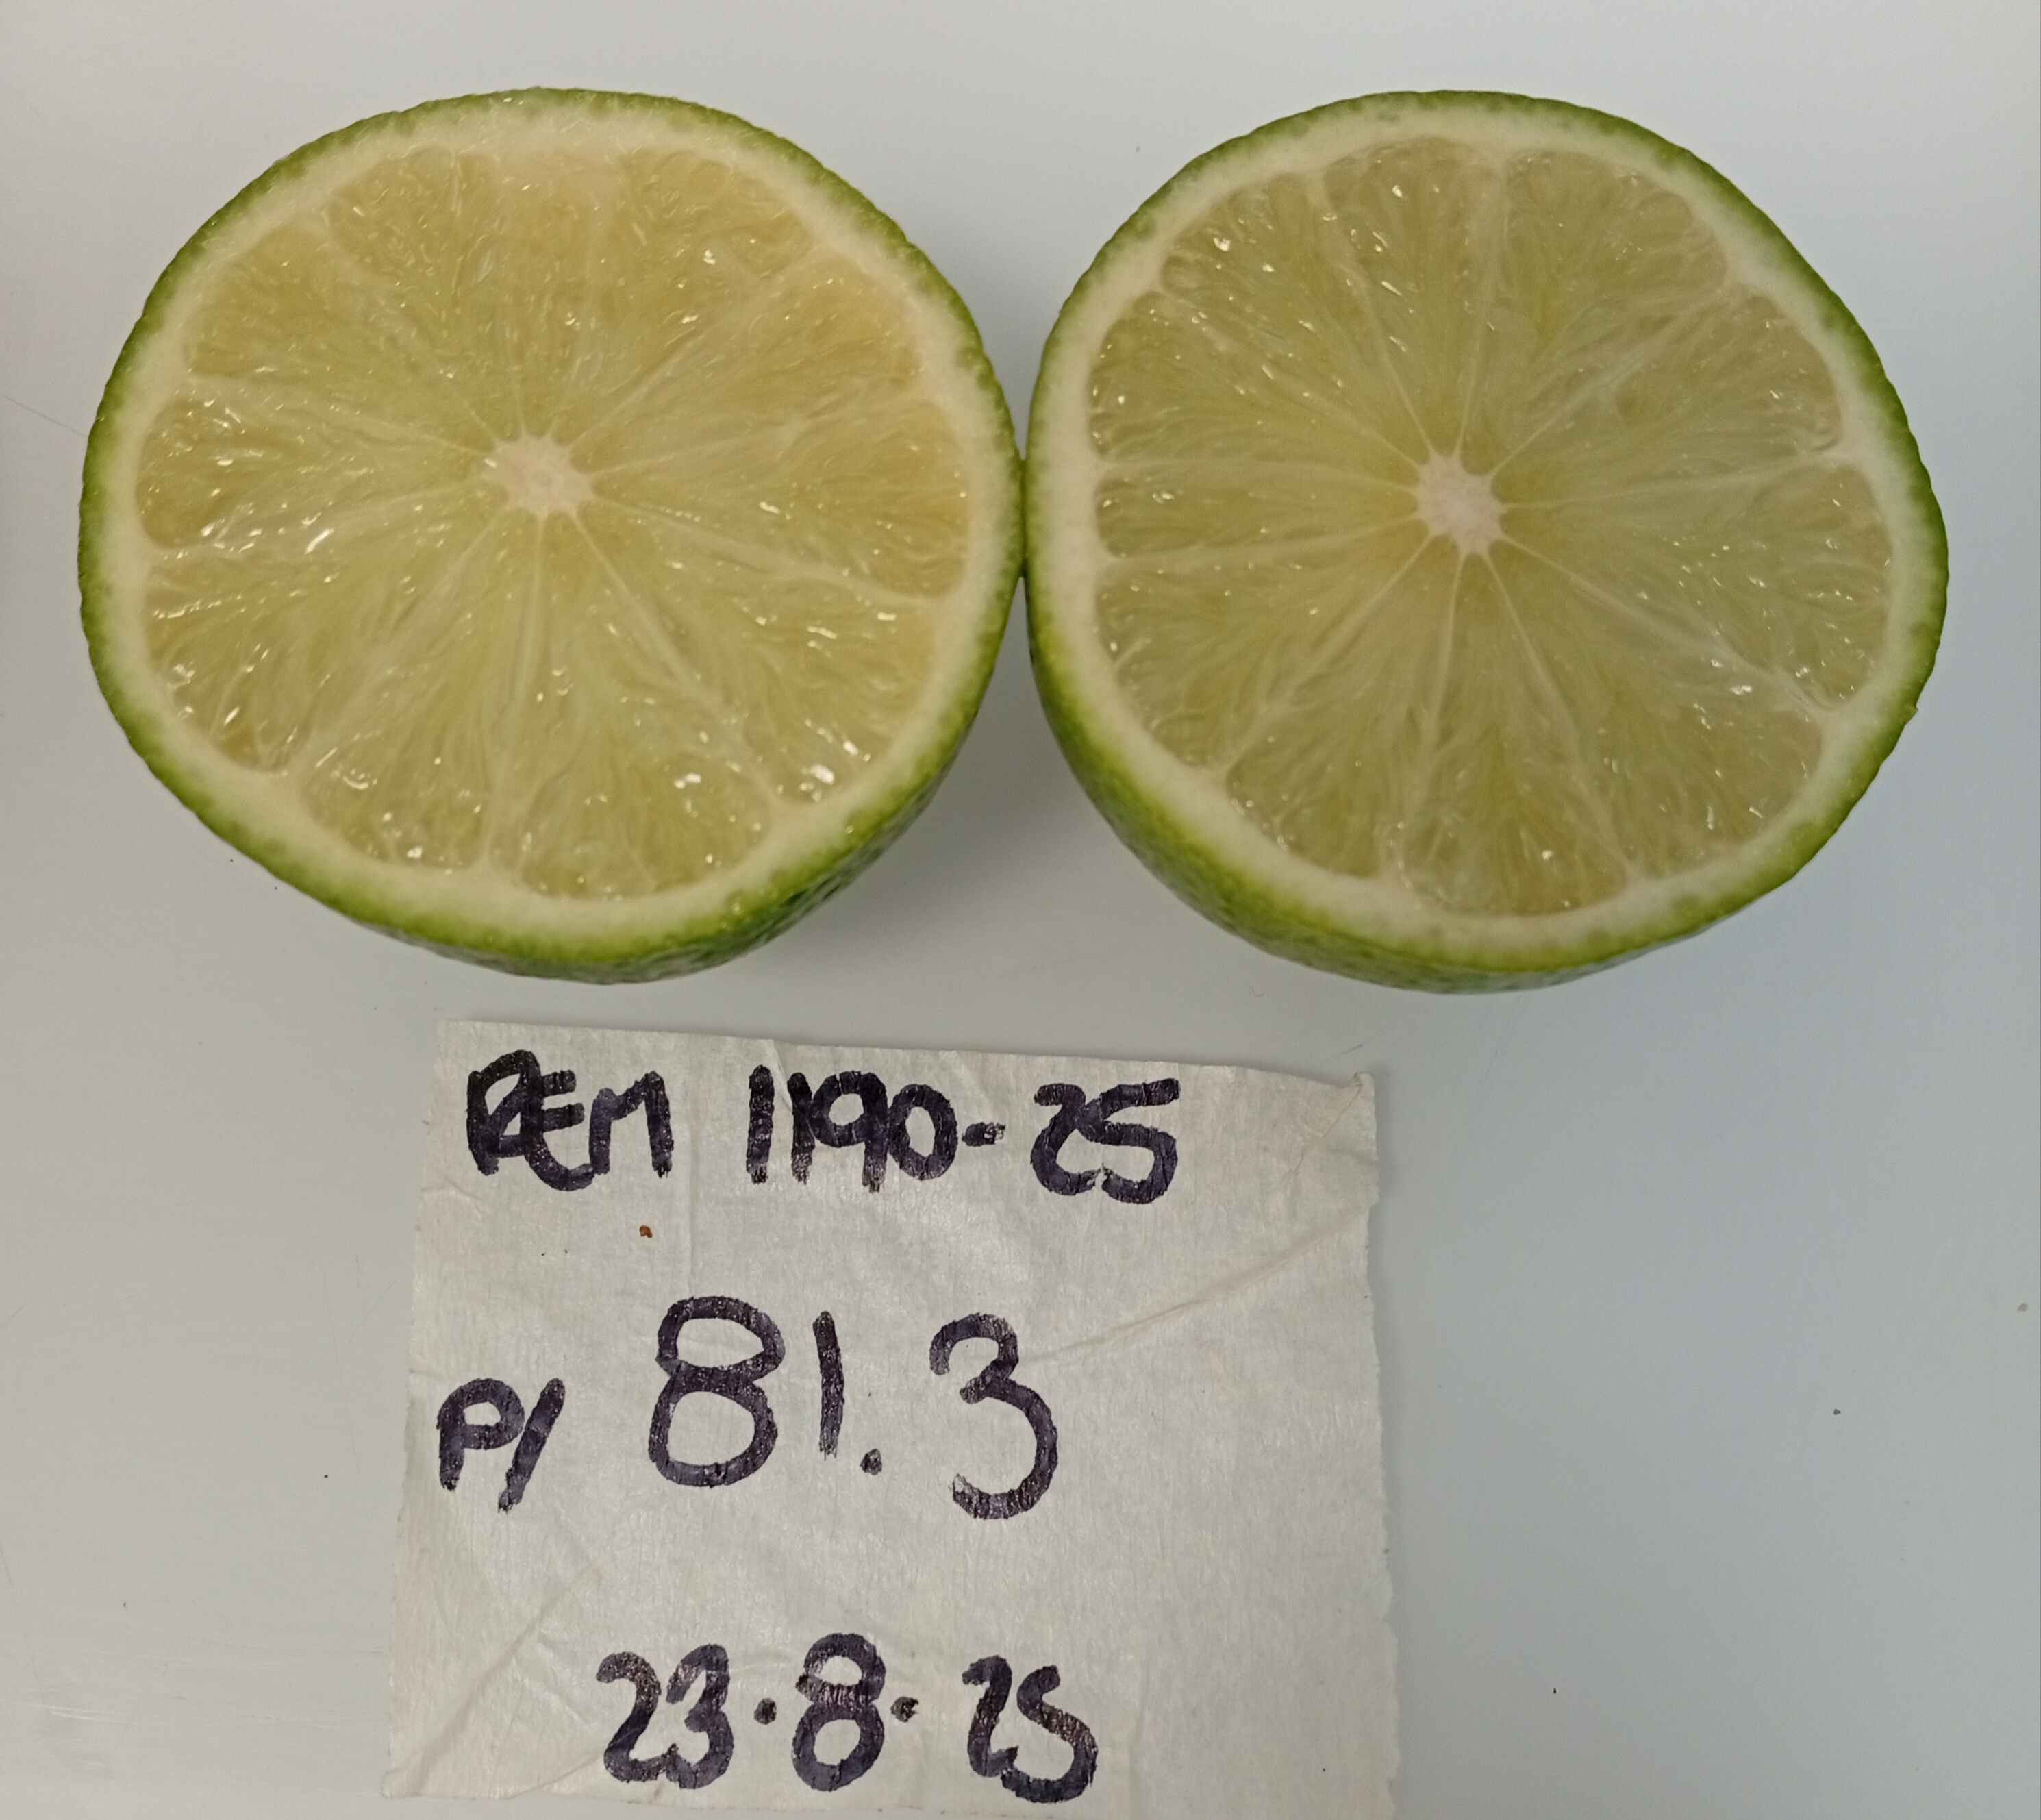 REM 1190-25
P/ 81.3
23.8.25